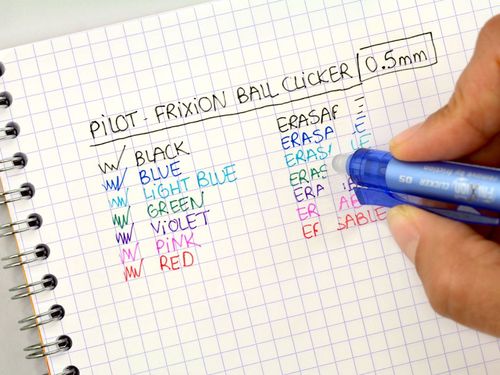 PILOT - FRIXION BALL CLICKER 0.5mm
BLACK
BLUE
LIGHT BLUE
GREEN
VIOLET
PINK
RED
ERASA
ERASA
ERAS
ERAS
ERA
ER
ER SABLE
FriXion CLICKER 05